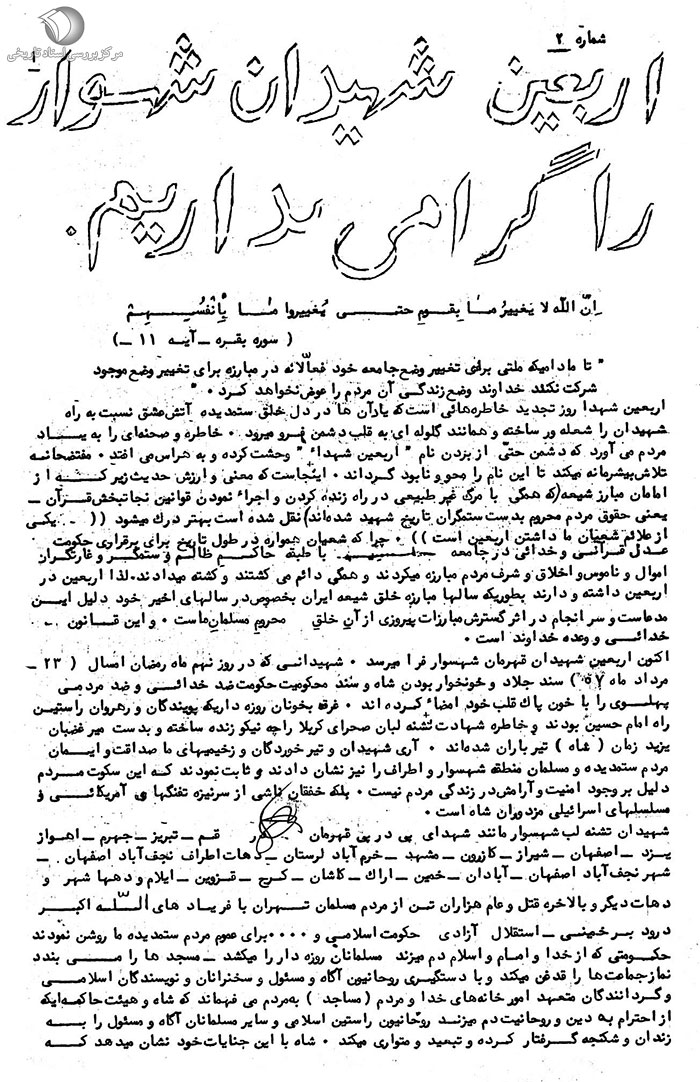 مرکز بررسی اسناد تاریخی
شماره ۲
اربعین شهیدان شهسوار
را گرامی بداریم .
اِنَّ اللّه لا یَغییرُ مٰا بِقومِ حتــی یُغییروا مٰا بِأنْفُسِـهِـمْ
( سوره بقره ــ آیـه ۱۱ ــ )
" تا مادامیکه ملتی برای تغییر وضع جامعه خود فعالانه در مبارزه برای تغییر وضع موجود
شرکت نکنند خداوند وضع زندگـی آن مردم را عوض نخواهد کـرد . "
اربعین شهدا روز تجدید خاطره هائی است که یاد آن ها در دل خلق ستمدیده آتش عشق نسبت به راه
شهیدان را شعله ور ساخته و همانند گلوله ای به قلب دشمن فرو میرود . خاطره و صحنه ای را به یـاد
مردم می آورد که دشمن حتّی از بردن نام " اربعین شهداء " وحشت کرده و به هراس می افتد . مفتضحانـه
تلاش بیشرمانه میکند تا این نام را محو و نابود گرداند . اینجاست که معنی و ارزش حدیث زیر کـه از
امامان مبارز شیعه (که همگی با مرگ غیر طبیعی در راه زنده کردن و اجراء نمودن قوانین نجاتبخش قرآن ــ
یعنی حقوق مردم محروم بدست ستمگران تاریخ شهید شده اند) نقل شده است بهتر درک میشود (( ــ یکـی
از علائم شیعیان ما داشتن اربعین است )) . چرا که شیعیان همواره در طول تاریخ برای برقراری حکومت
عدل قـرآنـی و خدائی در جامعه با طبقه حاکم ظالم و ستمگر و غارتگران
اموال و ناموس و اخلاق و شرف مردم مبارزه میکردند و همگی دائم می کشتند و کشته میدادند . لذا اربعین در
اربعین داشته و دارند بطوریکه سالها مبارزه خلق شیعه ایران بخصوص در سالهای اخیر خود دلیل ایـن
مدعاست و سر انجام در اثر گسترش مبارزات پیروزی از آنِ خلق محروم مسلمان ماست . و این قـانون ــ
خدائـی و وعده خداوند است .
اکنون اربعین شهیدان قهرمان شهسوار فرا میرسد . شهیدانـی که در روز نهم ماه رمضان امسال ( ۲۳ ــ
مرداد ماه ۵۷ ) سند جلاد و خونخوار بودن شاه و سند محکومیت حکومت ضد خدائـی و ضد مردمـی
پهلـوی را با خون پاک قلب خود امضاء کرده اند . غرقه بخونان روزه داریکه پویندگان و رهروان راستین
راه امام حسین بودند و خاطره شهادت تشنه لبان صحرای کربلا را چه نیکو زنده ساخته و بدست میر غضبان
یزید زمان ( شاه ) تیر باران شده اند . آری شهیدان و تیر خوردگان و زخمیهای ما صداقت و ایـمان
مردم ستمدیده و مسلمان منطقه شهسوار و اطراف را نیز نشان دادند و ثابت نمودند کـه این سکوت مـردم
دلیل بر وجود امنیت و آرامش در زندگی مردم نیست . بلکه خفقان ناشی از سرنیزه تفنگها ی آمریکائـی و
مسلسلهای اسرائیلی مزدوران شاه است .
شهیدان تشنه لب شهسوار مانند شهدای پی در پی قهرمان قـم ــ تبریـز ــ جهرم ــ اهـواز
یـزد ــ اصفهان ــ شیراز ــ کازرون ــ مشهد ــ خرم آباد لرستان ــ دهات اطراف نجف آباد اصفهان ــ
شهر نجف آباد اصفهان ــ آبادان ــ خمین ــ اراک ــ کاشان ــ کـرج ــ قزوین ــ ایلام و دهها شهر و
دهات دیگر و بالاخره قتل و عام هزاران تـن از مردم مسلمان تهـران با فریاد های اللّـه اکبر
درود بـر خمینـی ــ استقلال آزادی حکومت اسلامـی و .... برای عموم مردم ستمدیده ما روشن نمودند
حکـومتی که از خدا و امام و اسلام دم میزند مسلمانان روزه دار را میکشد ــ مسجد ها را مـی بندد
نماز جماعت ها را قدغن میکند و با دستگیری روحانیون آگاه و مسئول و سخنرانان و نویسندگان اسلامـی
و گـردانندگان متعهد امور خانه های خدا و مردم ( مساجد ) به مردم می فهماند که شاه و هیئت حاکمه ایکه
از احترام به دین و روحانیت دم میزنـد روحّانیون راستین اسلامی و سایر مسلمانان آگاه و مسئول را بـه
زندان و شکنجه گرفتار کرده و تبعید و متواری میکند . شاه با این جنایات خود نشان میدهد کـه